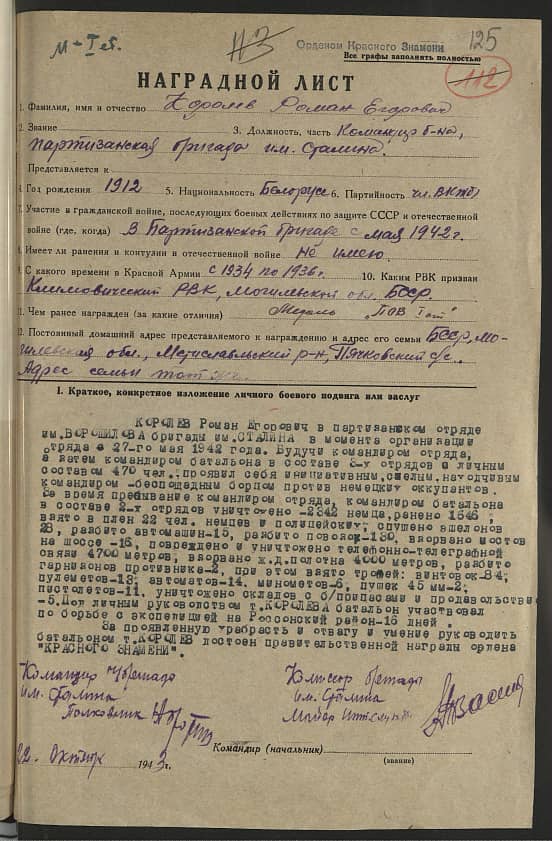 М-I об.
Орденом Красного Знамени
125
Все графы заполнять полностью
112
НАГРАДНОЙ ЛИСТ
1. Фамилия, имя и отчество Королев Роман Егорович
2. Звание 3. Должность, часть Командир б-на,
партизанская бригада им. Сталина.
Представляется к
4. Год рождения 1912 5. Национальность Белорус 6. Партийность чл. ВКПб)
7. Участие в гражданской войне, последующих боевых действиях по защите СССР и отечественной
войне (где, когда) В Партизанской бригаде с мая 1942 г.
8. Имеет ли ранения и контузии в отечественной войне Не имею.
9. С какого времени в Красной Армии с 1934 по 1936 г. 10. Каким РВК призван
Климовический РВК, Могилевской обл. БССР.
11. Чем ранее награжден (за какие отличия) Медаль „ПОВ I ст"
12. Постоянный домашний адрес представляемого к награждению и адрес его семьи БССР, Мо-
гилевская обл., Мстиславльский р-н, Пячковский с/с.
Адрес семьи тот же.
I. Краткое, конкретное изложение личного боевого подвига или заслуг
КОРОЛЕВ Роман Егорович в партизанском отряде
им.ВОРОШИЛОВА бригады им.СТАЛИНА в момента организации
отряда с 27-го мая 1942 года. Будучи командиром отряда,
а затем командиром батальона в составе 3-х отрядов с личным
составом 470 чел. проявил себя инициативным, смелым, находчивым
командиром -беспощадным борцом против немецких оккупантов.
За время пребывание командиром отряда, командиром батальона
в составе 2-х отрядов уничтожено -2342 немца, ранено 1646,
взято в плен 22 чел. немцев и полицейских, спущено эшелонов
28, разбито автомашин-15, разбито повозок-130, взорвано мостов
на шоссе -16, повреждено и уничтожено телефонно-телеграфной
связи 4700 метров, взорвано ж.д.полотна 4000 метров, разбито
гарнизонов противника-2, при этом взято трофей: винтовок-84;
пулеметов-13; автоматов-14. минометов-6, пушек 45 мм-2;
пистолетов-11. уничтожено складов с б/припасами и продовольствием
-5. Под личным руководством т.КОРОЛЕВА батальон участвовал
по борьбе с экспедицией на Россонский район-16 дней .
За проявленную храбрасть и отвагу и умение руководить
батальоном т.КОРОЛЕВ достоин правительственной награды ордена
"КРАСНОГО ЗНАМЕНИ".
Командир бригады
им. Сталина
Полковник
Комиссар бригады
им. Сталина
Майор
Командир (начальник)
(звание)
22. Октября 1943 г.